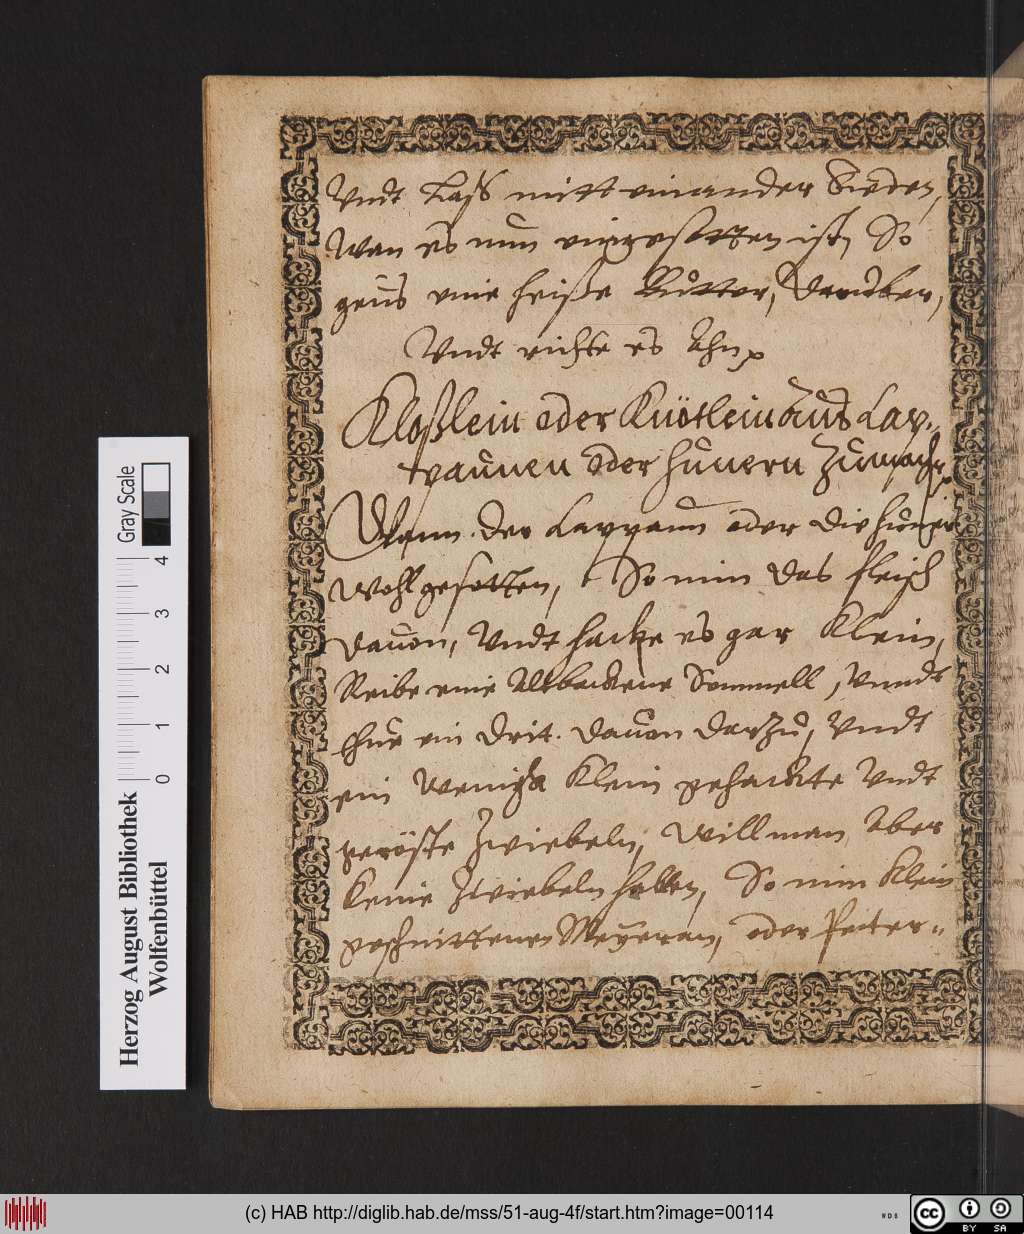 Vndt Lass mitt einander Sieden,
Wan es nun eingesotten ist, So
geus eine heiße Butter, darüber,
Vndt richte es Ahn
Kloßlein oder Knötlein aus Cap-
paunen oder hünern Zumachen
Wann der Cappaun oder die hüner
wohl gesotten, So nim das fleisch
dauon, Vndt hacke es gar Klein,
Reibe eine Altbackene Semmell, Vnndt
thue ein drit. dauon darzu, Vndt
ein wenigh Klein gehackte Vndt
geröste Zwiebeln, Will man Aber
Keine Zwiebeln haben, So nim Klein
geschnittenen Meyeran, oder Peter-
Gray Scale
4
3
2
1
0
Herzog August Bibliothek
Wolfenbüttel
(c) HAB http://diglib.hab.de/mss/51-aug-4f/start.htm?image=00114
WDB
cc
BY SA